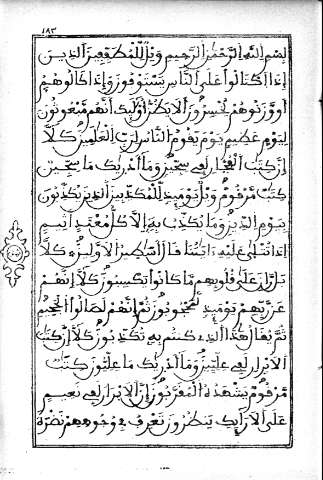 ١٨٣
بسم الله الرحمن الرحيم ويل للمطففين الذين
إذا اكتالوا على الناس يستوفون وإذا كالوهم
أو وزنوهم يخسرون ألا يظن أولئك أنهم مبعوثون
ليوم عظيم يوم يقوم الناس لرب العلمين كلا
إن كتب الفجار لفي سجين وما أدريك ما سجين
كتب مرقوم ويل يومئذ للمكذبين الذين يكذبون
بيوم الدين وما يكذب به إلا كل معتد أثيم
إذا تتلى عليه ءايتنا قال أسطير الأولين كلا
بل ران على قلوبهم ما كانوا يكسبون كلا إنهم
عن ربهم يومئذ لمحجوبون ثم إنهم لصالوا الجحيم
ثم يقال هذا الذي كنتم به تكذبون كلا إن كتب
الأبرار لفي عليين وما أدريك ما عليون كتب
مرقوم يشهده المقربون إن الأبرار لفي نعيم
على الأرائك ينظرون تعرف في وجوههم نضرة